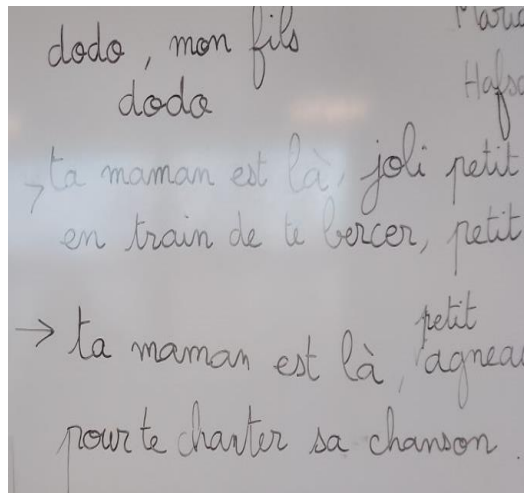 dodo, mon fils
dodo
→ ta maman est là, joli petit
en train de te bercer, petit
→ ta maman est là, petit
pour te chanter sa chanson.